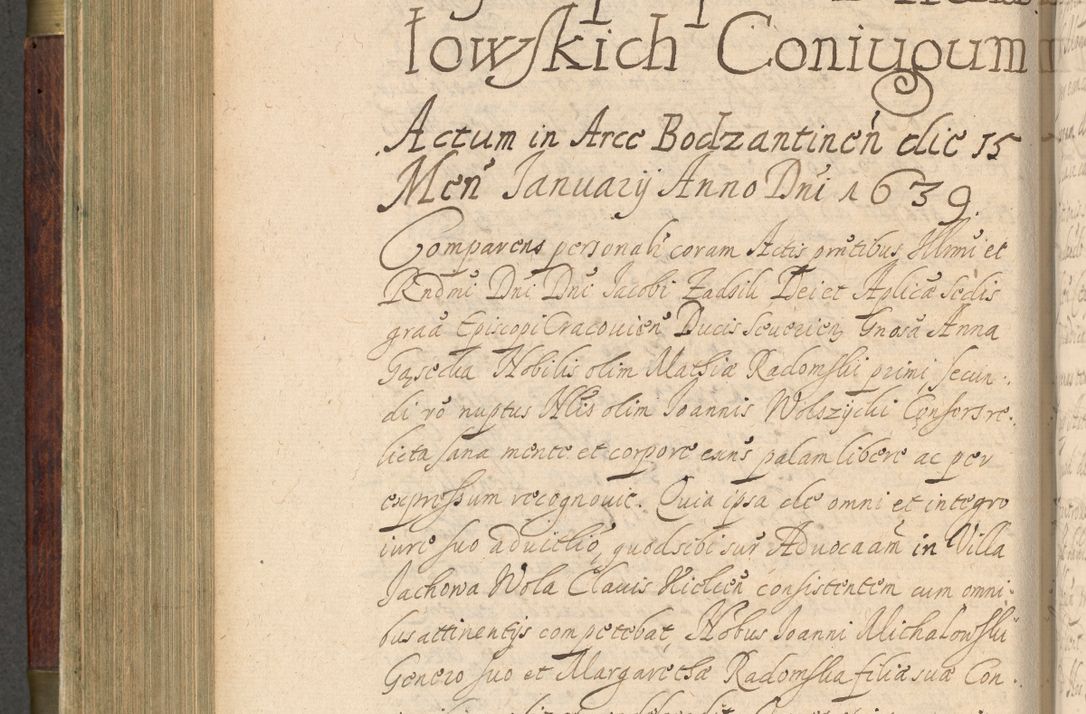 lowskich Coniugum
Actum in Arce Bodzantinen̄ die 15
Men̄ January Anno Dn̄i 1639.
Comparens personalr̄ coram Actis prn̄tibus Illmi et
Rndmi Dn̄i Dn̄i Jacobi Zadzik Dei et Aplicæ Sedis
graā Episcopi Cracovien̄ Ducis Severien̄ Gnosa Anna
Gąsecka Nobilis olim Mathiæ Radomski primi secun-
di vō nuptus Nlis olim Joannis Wolszycki Consors re-
licta sana mente et corpore exn̄s palam libere ac per
expressum recognovit. Quia ipsa de omni et integro
iure suo advitlio, quod sibi sup̄ Advocaām in Villa
Jachowa Wola Clavis Kielcen̄ consistentem cum omni-
bus attinentijs competebat Nobus Joanni Michalowski
Genero suo et Margarethæ Radomska filiæ suæ Con-